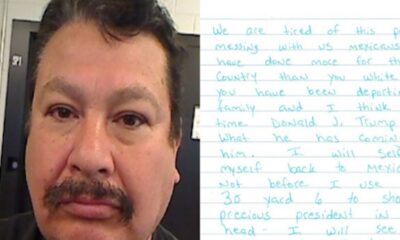 We are tired of this
messing with us mexicans
have done more for
country than you white
you have been
family and I think
time Donald J. Trump
what he has
him. I will self
myself back to
Not before I use
30 yard 6 to
precious president in
head- I will see